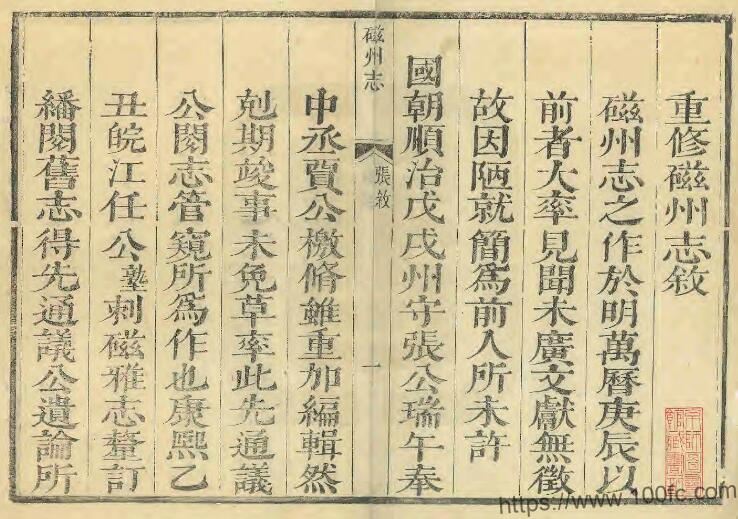 重修磁州志敘
磁州志之作於明萬曆庚辰以
前者大率見聞未廣文獻無徵
故因陋就簡爲前人所未許
國朝順治戊戌州守張公瑞午奉
磁州志
張敘
一
中丞賈公檄脩雖重加編輯然
剋期竣事未免草率此先通議
公閱志管窺所爲作也康熙乙
丑皖江任公塾刺磁雅志釐訂
繙閱舊志得先通議公遺論所
https://www.100fc.com